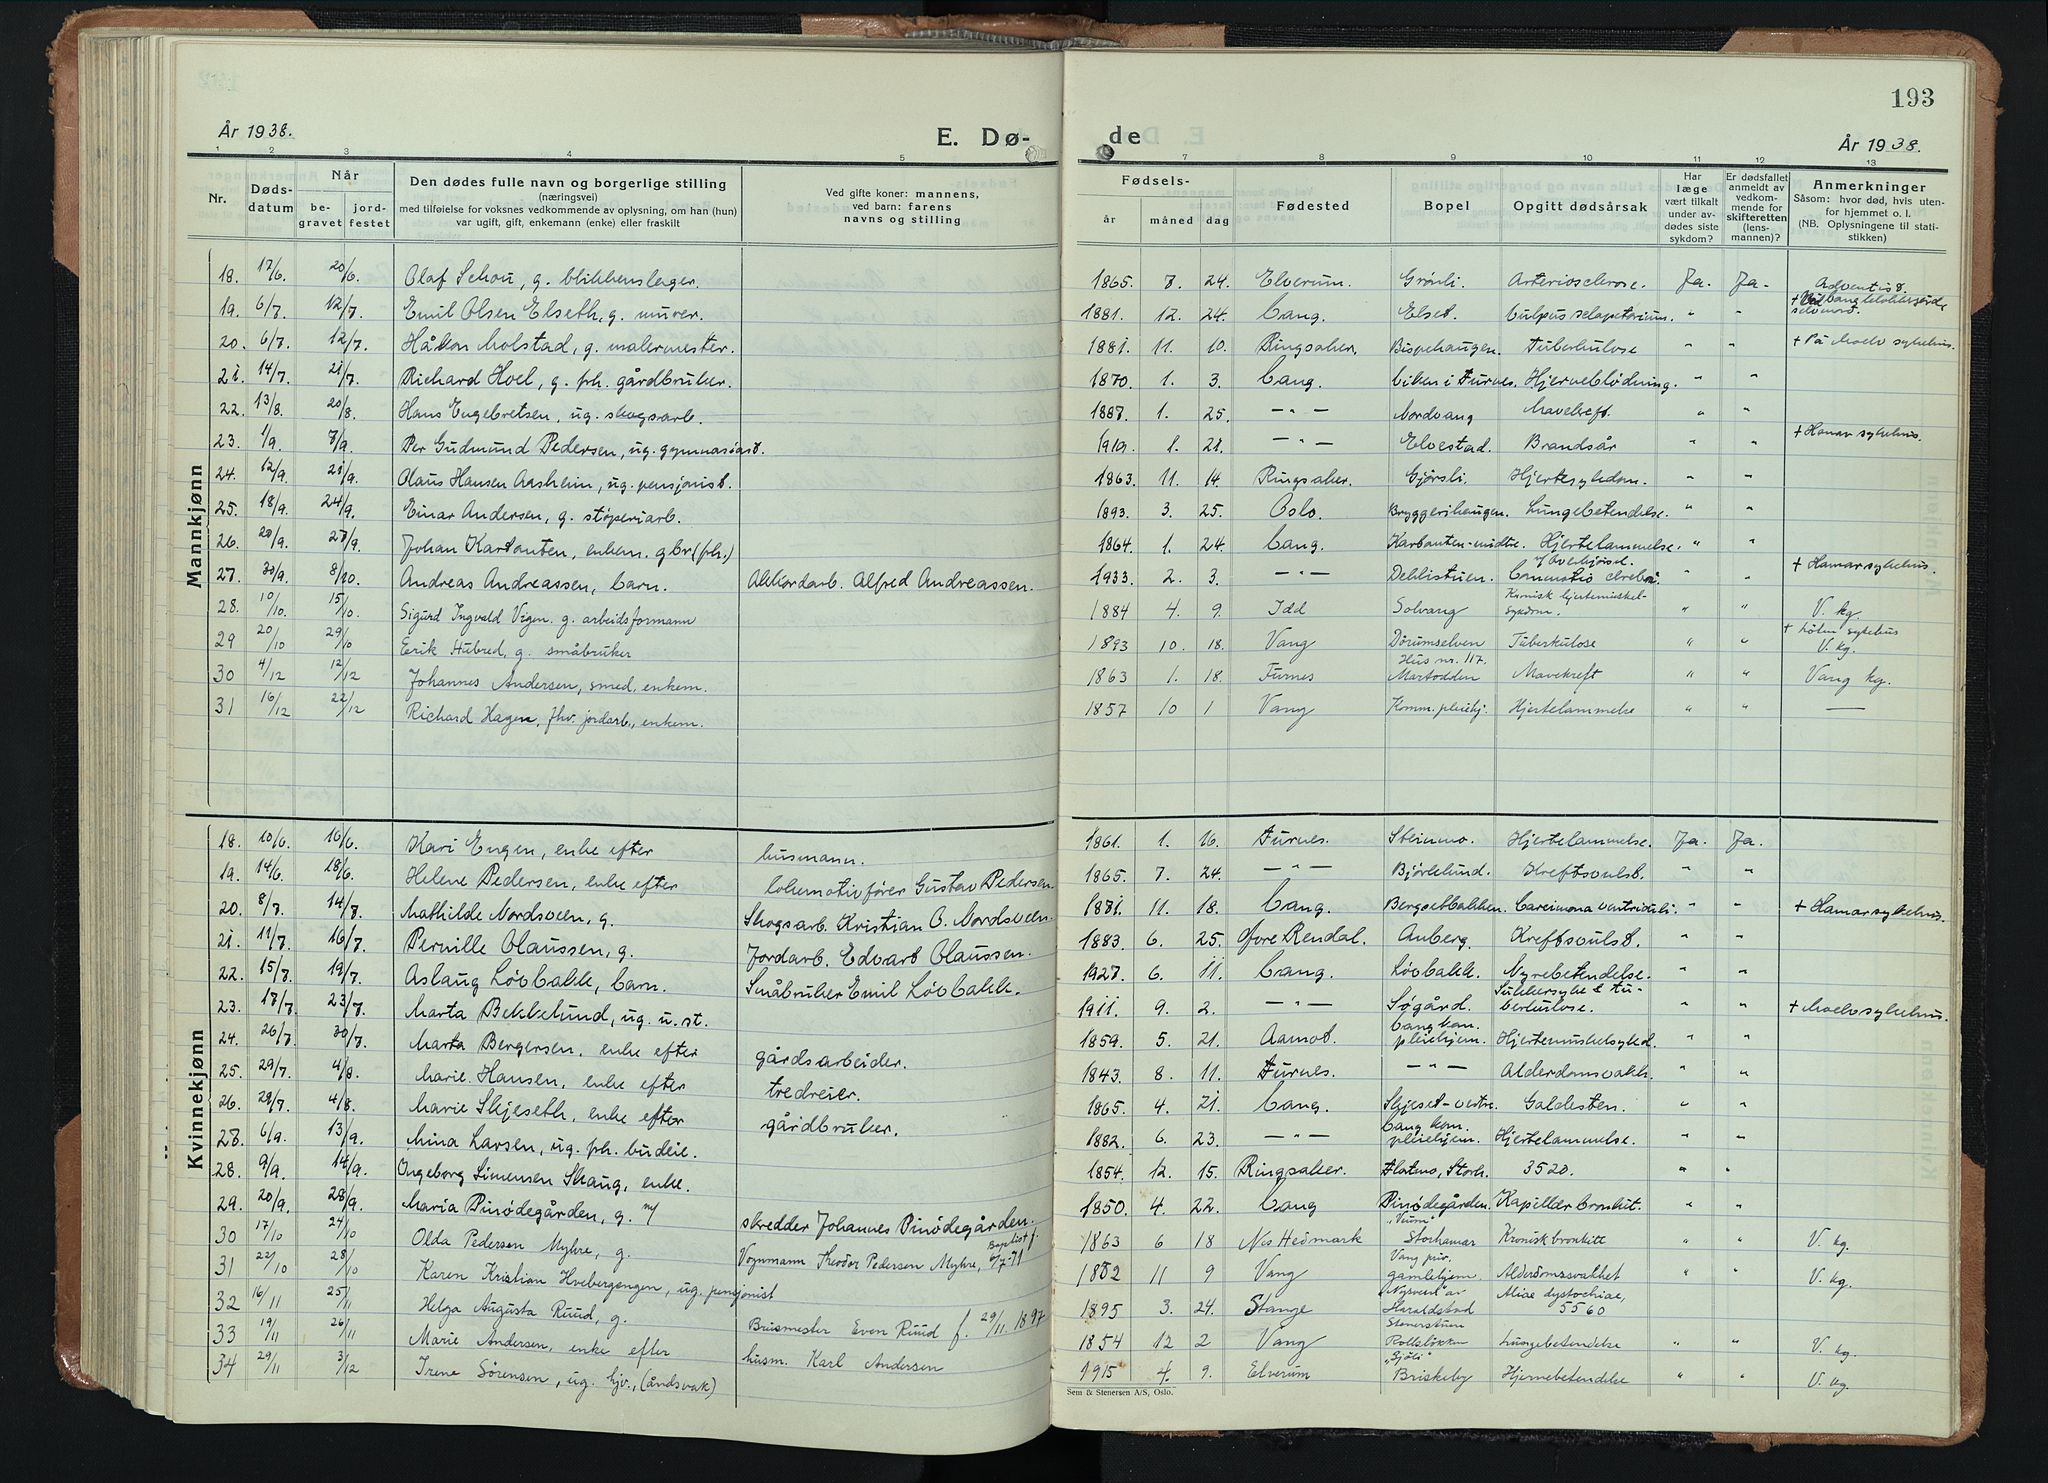 193
År 1938.
E. Dø-
de
År 1938.
1 2 3 4 5 7 8 9 10 11 12 13
Nr.
Døds-
datum
Når
be-
gravet
jord-
festet
Den dødes fulle navn og borgerlige stilling
(næringsvei)
med tilføielse for voksnes vedkommende av oplysning, om han (hun)
var ugift, gift, enkemann (enke) eller fraskilt
Ved gifte koner: mannens,
ved barn: farens
navns og stilling
Fødsels-
år måned dag
Fødested
Bopel
Opgitt dødsårsak
Har
læge
vært tilkalt
under av-
dødes siste
sykdom?
Er dødsfallet
anmeldt av
vedkom-
mende for
skifteretten
(lens-
mannen)?
Anmerkninger
Såsom: hvor død, hvis uten-
for hjemmet o. l.
(NB. Oplysningene til stati-
stikken)
Mannkjønn
18. 17/6. 20/6. Olaf Schou, g. blikkenslager. 1865. 7. 24. Elverum. Grønli. Arteriosclerose. Ja. Ja. Adventist.
19. 6/7. 12/7. Emil Olsen Elseth, g. murer. 1881. 12. 24. Vang. Elset. " " selvmord.
20. 6/7. 12/7. Håkon Molstad, g. malermester. 1881. 11. 10. Ringsaker. Bispehaugen. Tuberkulose " " + På Moelv sykehus.
21. 14/7. 21/7. Richard Hoel, g. fh. gårdbruker. 1870. 1. 3. Vang. Viken i Furnes. Hjerneblødning. " "
22. 13/8. 20/8. Hans Engebretsen, ug. skogsarb. 1887. 1. 25. — " — Nordvang Mavekreft. " "
23. 1/9. 7/9. Per Gudmund Pedersen, ug. gymnasiast. 1919. 1. 21. — " — Elvestad. Brandsår " " + Hamar sykehus.
24. 12/9. 21/9. Olaus Hansen Aasheim, ug. pensjonist. 1863. 11. 14 Ringsaker. Gjørsli. Hjertesykdom. " "
25. 18/9. 24/9. Einar Andersen, g. støperiarb. 1893. 3. 25. Oslo. Bryggerihaugen. Lungebetendelse. " "
26. 20/9. 27/9. Johan Karbonten, enkem. gbr. (fh.) 1864. 1. 24. Vang. Karbonten-midtre. Hjertelammelse. " "
27. 30/9. 8/10. Andreas Andreassen, barn. Akkordarb. Alfred Andreassen. 1933. 2. 3. — " — Dehlistuen. Overkjørsel. Commotio cerebri. " " + Hamar sykehus.
28. 10/10. 15/10 Sigurd Ingvald Vigen. g. arbeidsformann 1884 4. 9. Idd Solvang Kronisk hjertemuskel-
sykdom. " " V. kg.
29 20/10 29/10 Erik Hubred, g. småbruker 1893 10. 18. Vang Dørumselven Tuberkulose " " + Løten sykehus
V. kg.
30 4/12 12/12 Johannes Andersen, smed, enkem. 1863 1. 18. Furnes Hus nr. 117.
Martodden Mavekreft " " Vang kg.
31 16/12 22/12 Richard Hagen, fhv. jordarb., enkem. 1857 10 1 Vang Komm. pleiehj. Hjertelammelse " " —
Kvinnekjønn
18. 10/6. 16/6. Kari Engen, enke efter husmann. 1861. 1. 16. Furnes. Steinmo. Hjertelammelse. Ja. Ja.
19. 14/6. 18/6. Helene Pedersen, enke efter lokomotivfører Gustav Pedersen. 1865. 7. 24. — " — Bjørkelund. Kreftsvulst. " "
20. 8/7. 14/7. Mathilde Nordsveen, g. Skogsarb. Kristian O. Nordsveen. 1871. 11. 18. Vang. Bergsetbakken. Carcinoma ventriculi. " " + Hamar sykehus.
21. 11/7. 16/7. Pernille Olaussen, g. Jordarb. Edvart Olaussen. 1883. 6. 25. Øvre Rendal. Anberg. Kreftsvulst. " "
22. 15/7. 19/7. Aslaug Løvbakk, barn. Småbruker Emil Løvbakk. 1927. 6. 11. Vang. Løvbakk. Nyrebetendelse. " "
23. 17/7. 23/7. Marta Bekkelund, ug. u. st. 1911. 9. 2. — " — Søgård. Sukkersyke & tu-
berkulose. " " + Moelv sykehus.
24. 26/7. 30/7. Marta Bergersen, enke efter gårdsarbeider. 1859. 5. 21. Aamot. Vang kom.
pleiehjem. Hjertemuskelsykd. " "
25. 29/7. 4/8. Marie Hansen, enke efter tredreier. 1843. 8. 11. Furnes. — " — Alderdomsvakh. " "
26. 29/7. 4/8. Marie Skjeseth, enke efter gårdbruker. 1865. 4. 21. Vang. Skjeset-vestre. Galdesten. " "
27. 6/9. 13/9. Mina Larsen, ug. fh. budeie. 1882. 6. 23. — " — Vang kom.
pleiehjem. Hjertelammelse. " "
28. 9/9. 14/9. Ingeborg Simensen Skaug, enke. 1854. 12. 15. Ringsaker. Flatmo, Storh. 3520. " "
29. 20/9. 28/9. Maria Pinødegården, g. skredder Johannes Pinødegården. 1850. 4. 22. Vang Pinødegården. Kapillær bronkit. " "
30 17/10 24/10 Olda Pedersen Myhre, g. Vognmann Theodor Pedersen Myhre, Baptist f. 6/7-71 1863 6 18 Nes Hedmark Storhamar Kronisk bronkitt " " V. kg.
31 22/10 28/10 Karen Kristian Hvebergengen, ug. pensjonist 1852 11 9 Vang Vang priv.
gamlehjem. Alderdomssvakhet " " V. kg.
32 16/11 25/11 Helga Augusta Ruud, g. Brusmester Even Ruud f. 29/11 1897 1895 3. 24. Stange Haraldstad 5560 " "
33 19/11 26/11 Marie Andersen, enke efter husm. Karl Andersen 1854 12 2 Vang Stenerstuen
Rollsløkken Lungebetendelse " " V. kg.
34 29/11 3/12 Irene Sørensen, ug. hjv., (åndsvak) 1915 4. 9. Elverum Briskeby Hjernebetendelse " " V. kg.
Sem & Stenersen A/S, Oslo.